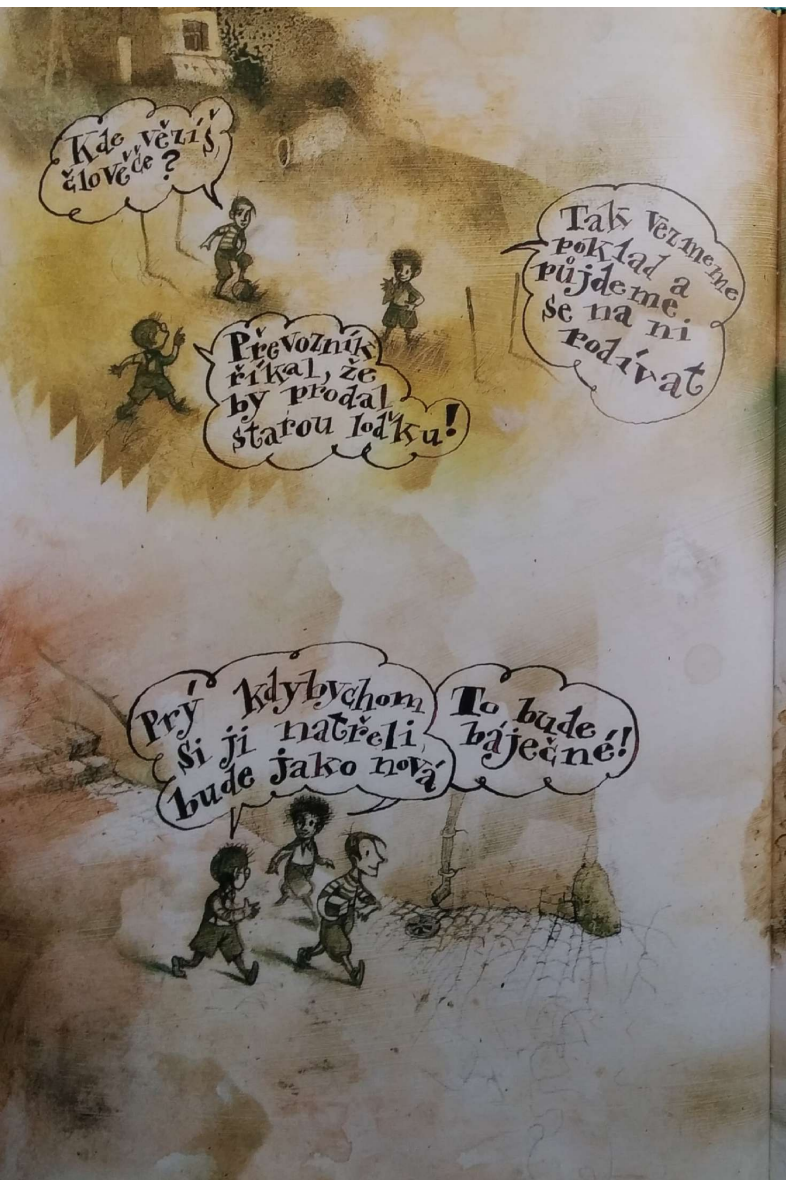 Kde vězíš
člověče?
Převozník
říkal, že
by prodal
starou loďku!
Tak vezmeme
poklad a
půjdeme
se na ni
podívat
Prý kdybychom
si ji natřeli,
bude jako nová
To bude
báječné!